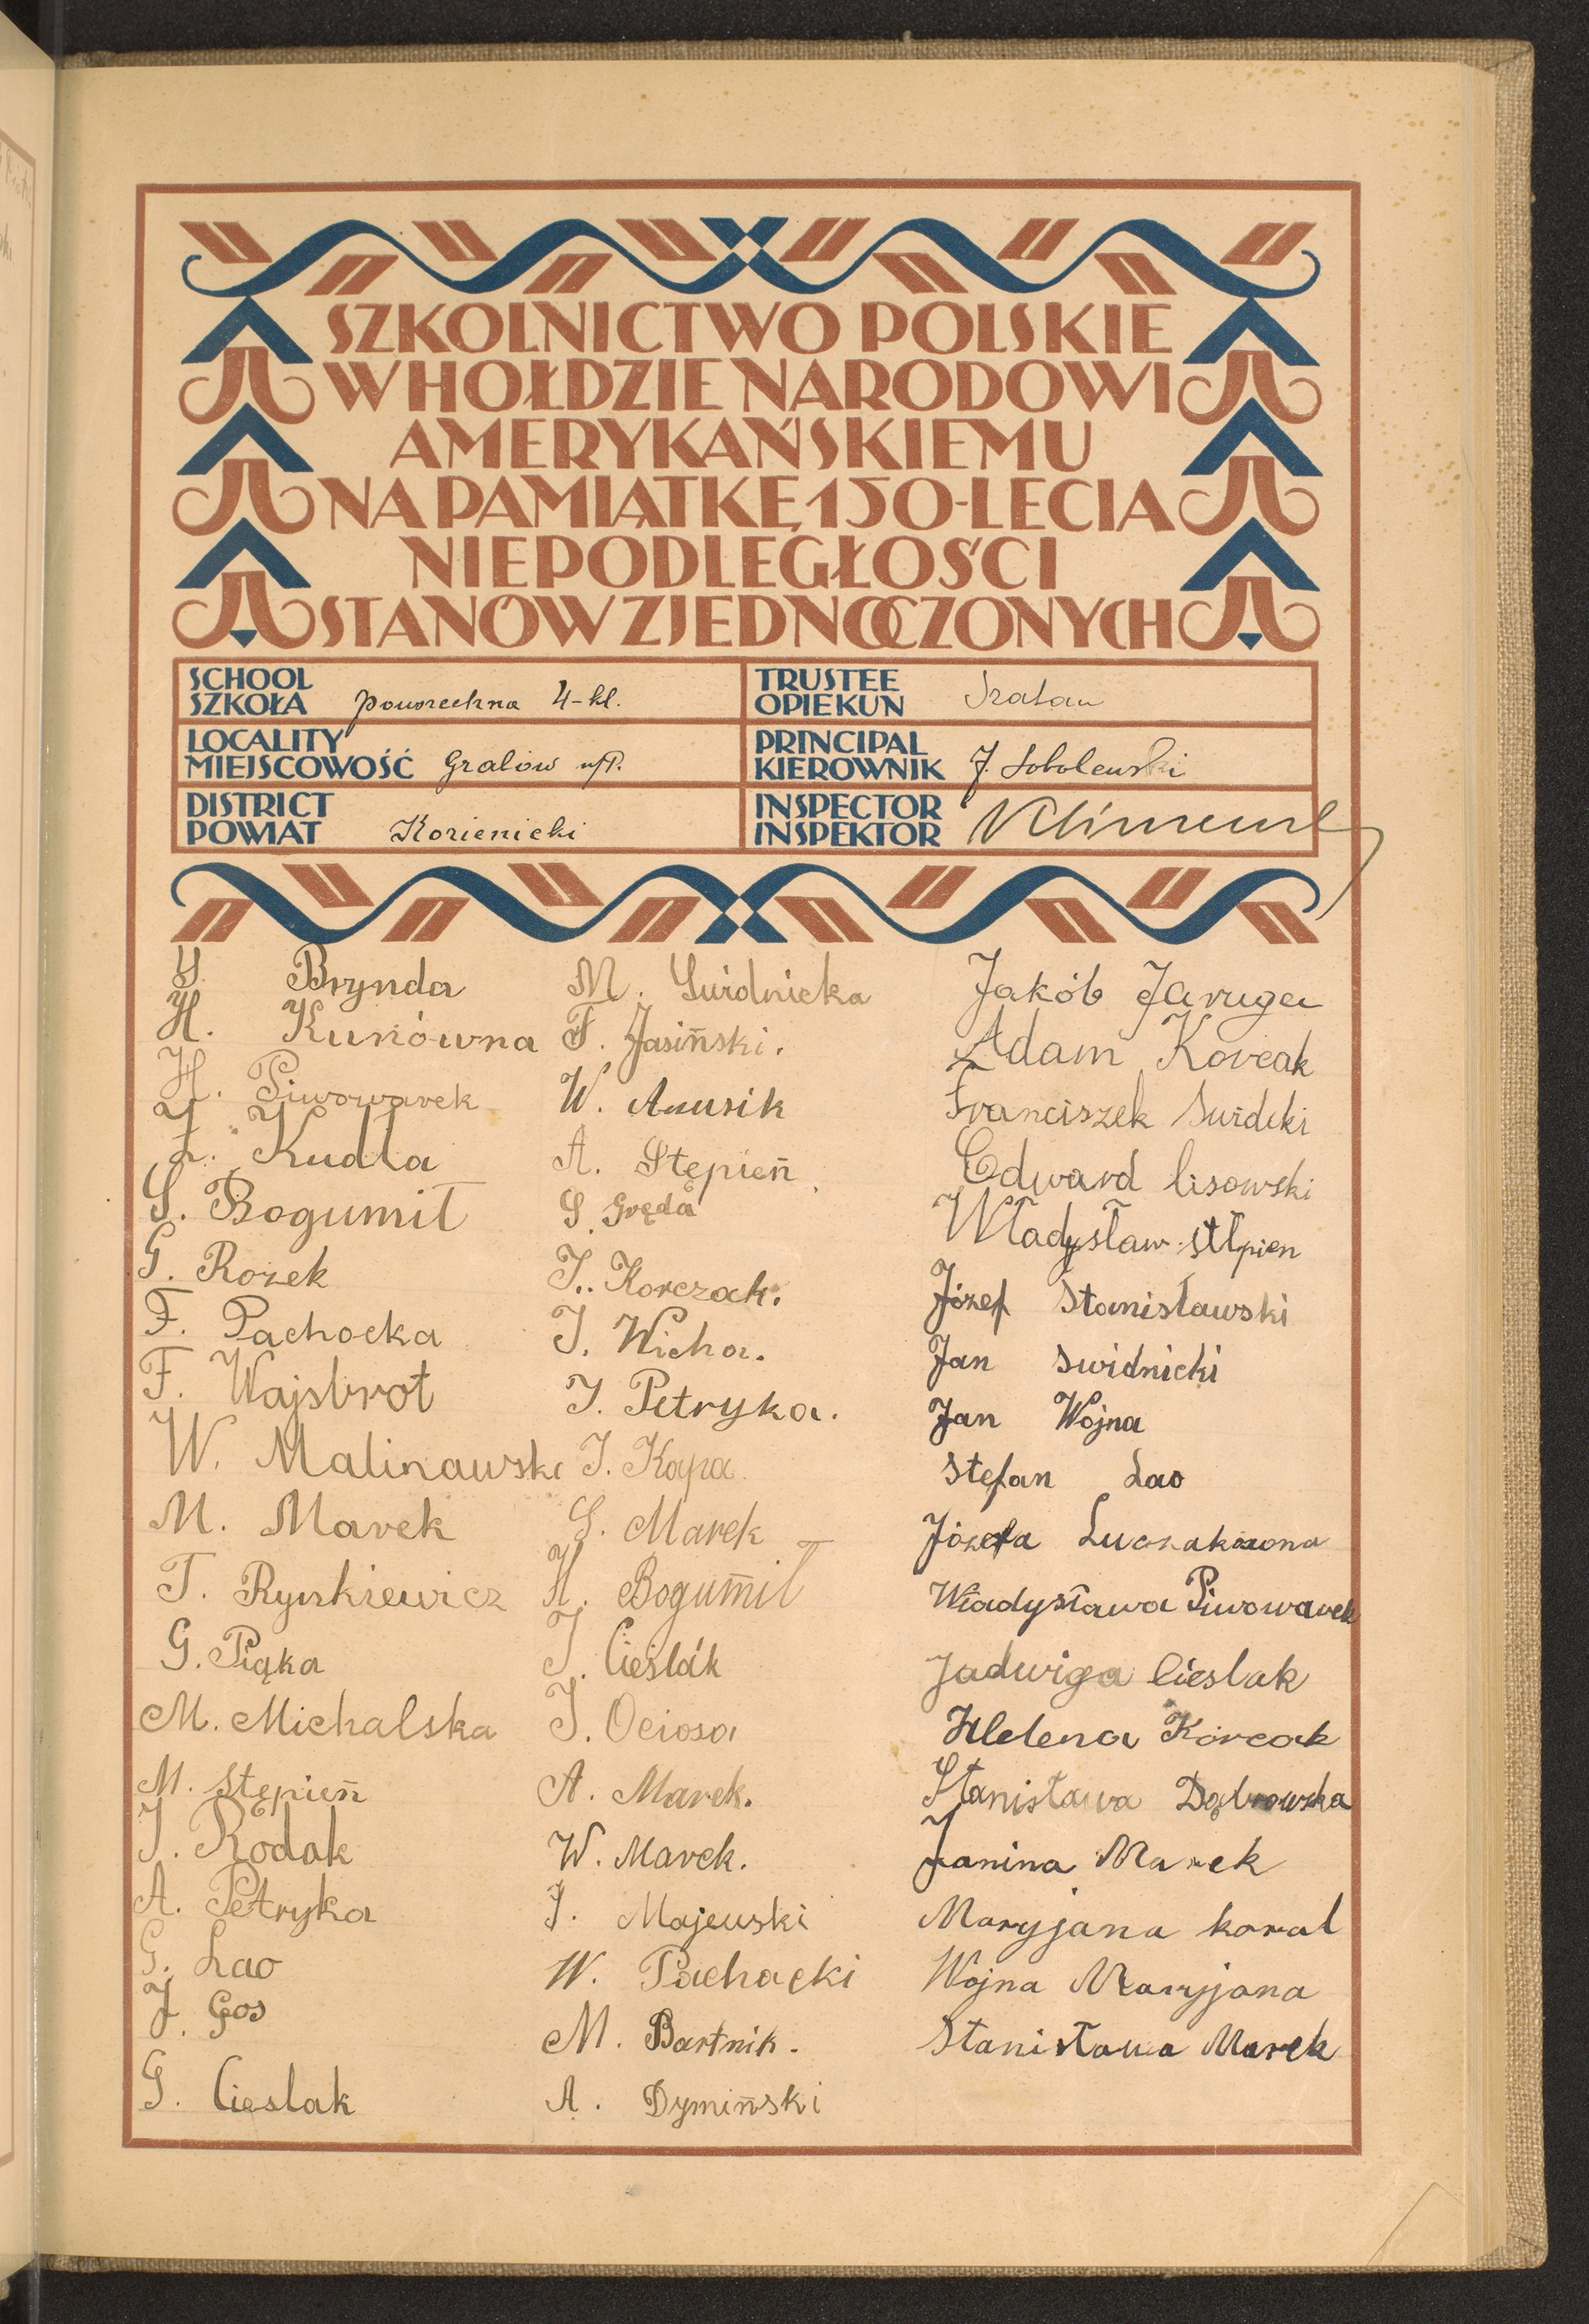 SZKOLNICTWO POLSKIE
W HOŁDZIE NARODOWI
AMERYKAŃSKIEMU
NA PAMIĄTKĘ 150-LECIA
NIEPODLEGŁOŚCI
STANÓW ZJEDNOCZONYCH
SCHOOL
SZKOŁA powszechna 4-kl.
TRUSTEE
OPIEKUN
LOCALITY
MIEJSCOWOŚĆ Grabów n/P.
PRINCIPAL
KIEROWNIK J. Sobolewski
DISTRICT
POWIAT Kozienicki
INSPECTOR
INSPEKTOR
S. Brynda
H. Kunówna
H. Piwowarek
Z. Kudła
S. Bogumił
G. Rozek
F. Pachocka
F. Wajsbrot
W. Malinawski
M. Marek
T. Ryszkiewicz
G. Piąka
M. Michalska
M. Stępień
J. Rodak
A. Petryka
G. Lao
J. Gos
G. Cieslak
M. Swidnicka
F. Jasiński.
W. Anusik
A. Stępień
S. Gręda
J. Korczak.
J. Wicha.
J. Petryka.
J. Kapa.
S. Marek
H. Bogumił
J. Cieślak
J. Ociosa
A. Marek.
W. Marek.
J. Majewski
W. Pachacki
M. Bartnik.
A. Dymiński
Jakób Jaruga
Adam Korcak
Franciszek
Edward lisowski
Władysław Stępien
Józef Stanisławski
Jan Swidnicki
Jan Wojna
Stefan Lao
Józefa
Władysława Piwowarek
Jadwiga Cieslak
Helena Korcak
Stanisława Dąbrowska
Janina Marek
Maryjana kowal
Wojna Maryjana
Stanisława Marek